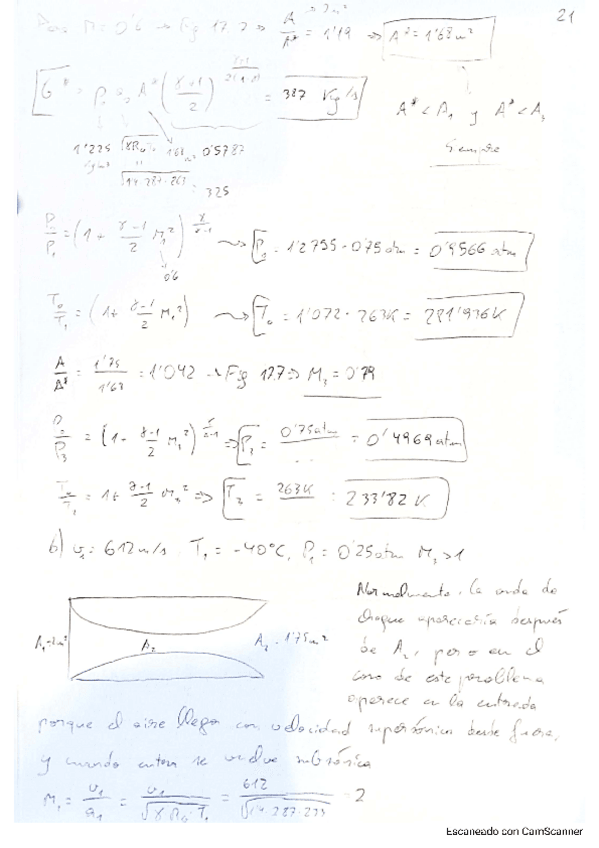 21
Para M = 0'6 → Fig 12.7 → A/A* = 1'19 → A* = 1'68 m²
G* = ρ₀ a₀ A* ((γ+1)/2) = 387 Kg/s
A* < A₁ y A* < A₃
Siempre
1'225 √γR₀T₀ 1'68 m² 0'5787
√1'4·287·263 = 325
P₀/P₁ = (1 + (γ-1)/2 M₁²)^(γ/(γ-1)) → P₀ = 1'2755 · 0'75 atm = 0'9566 atm
0'6
T₀/T₁ = (1 + (γ-1)/2 M₁²) → T₀ = 1'072 · 263K = 281'936K
A/A* = 1'75/1'68 = 1'042 → Fig 12.7 → M₃ = 0'79
= 0'75atm = 0'4969 atm
= 263K = 233'82 K
b) v₁ = 612 m/s, T₁ = -40°C, P₁ = 0'25 atm M₁>1
A₁=2m² A₂ A₃ = 1'75m²
Normalmente, la onda de
choque aparecería después
de A₂, pero en el
caso de este problema
aparece en la entrada
porque el aire llega con velocidad supersónica desde fuera,
y cuando entra se vuelve subsónica
M₁ = v₁/a₁ = v₁/√γ R₀ T₁ = 612/√1'4·287·233 = 2
Escaneado con CamScanner